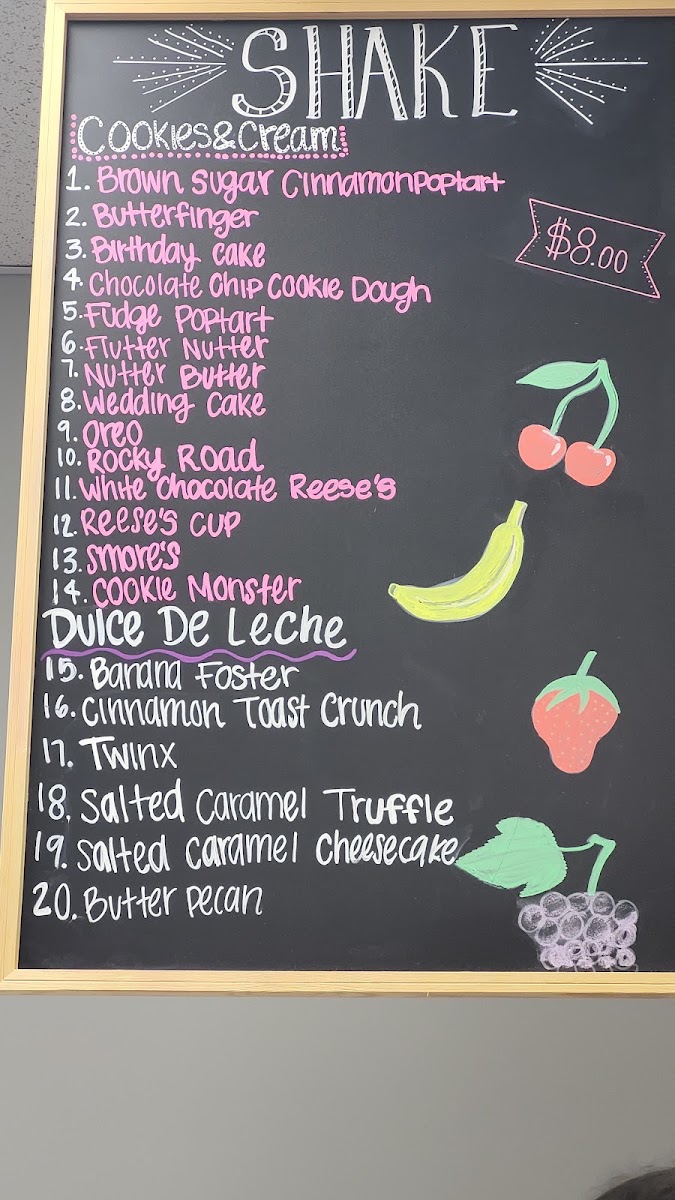 SHAKE
Cookies&Cream
1. Brown Sugar Cinnamon Poptart
2. Butterfinger
$8.00
3. Birthday Cake
4. Chocolate Chip Cookie Dough
5. Fudge Poptart
6. Flutter Nutter
7. Nutter Butter
8. Wedding Cake
9. Oreo
10. Rocky Road
11. White Chocolate Reese's
12. Reese's Cup
13. Smore's
14. Cookie Monster
Dulce De Leche
15. Banana Foster
16. Cinnamon Toast Crunch
17. Twinx
18. Salted Caramel Truffle
19. Salted Caramel Cheesecake
20. Butter Pecan